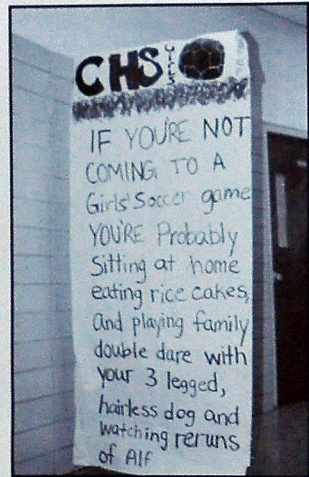 CHS GIRLS
IF YOU'RE NOT
COMING TO A
Girls' Soccer game
YOU'RE Probably
Sitting at home
eating rice cakes,
and playing family
double dare with
your 3 legged,
hairless dog and
watching reruns
of Alf